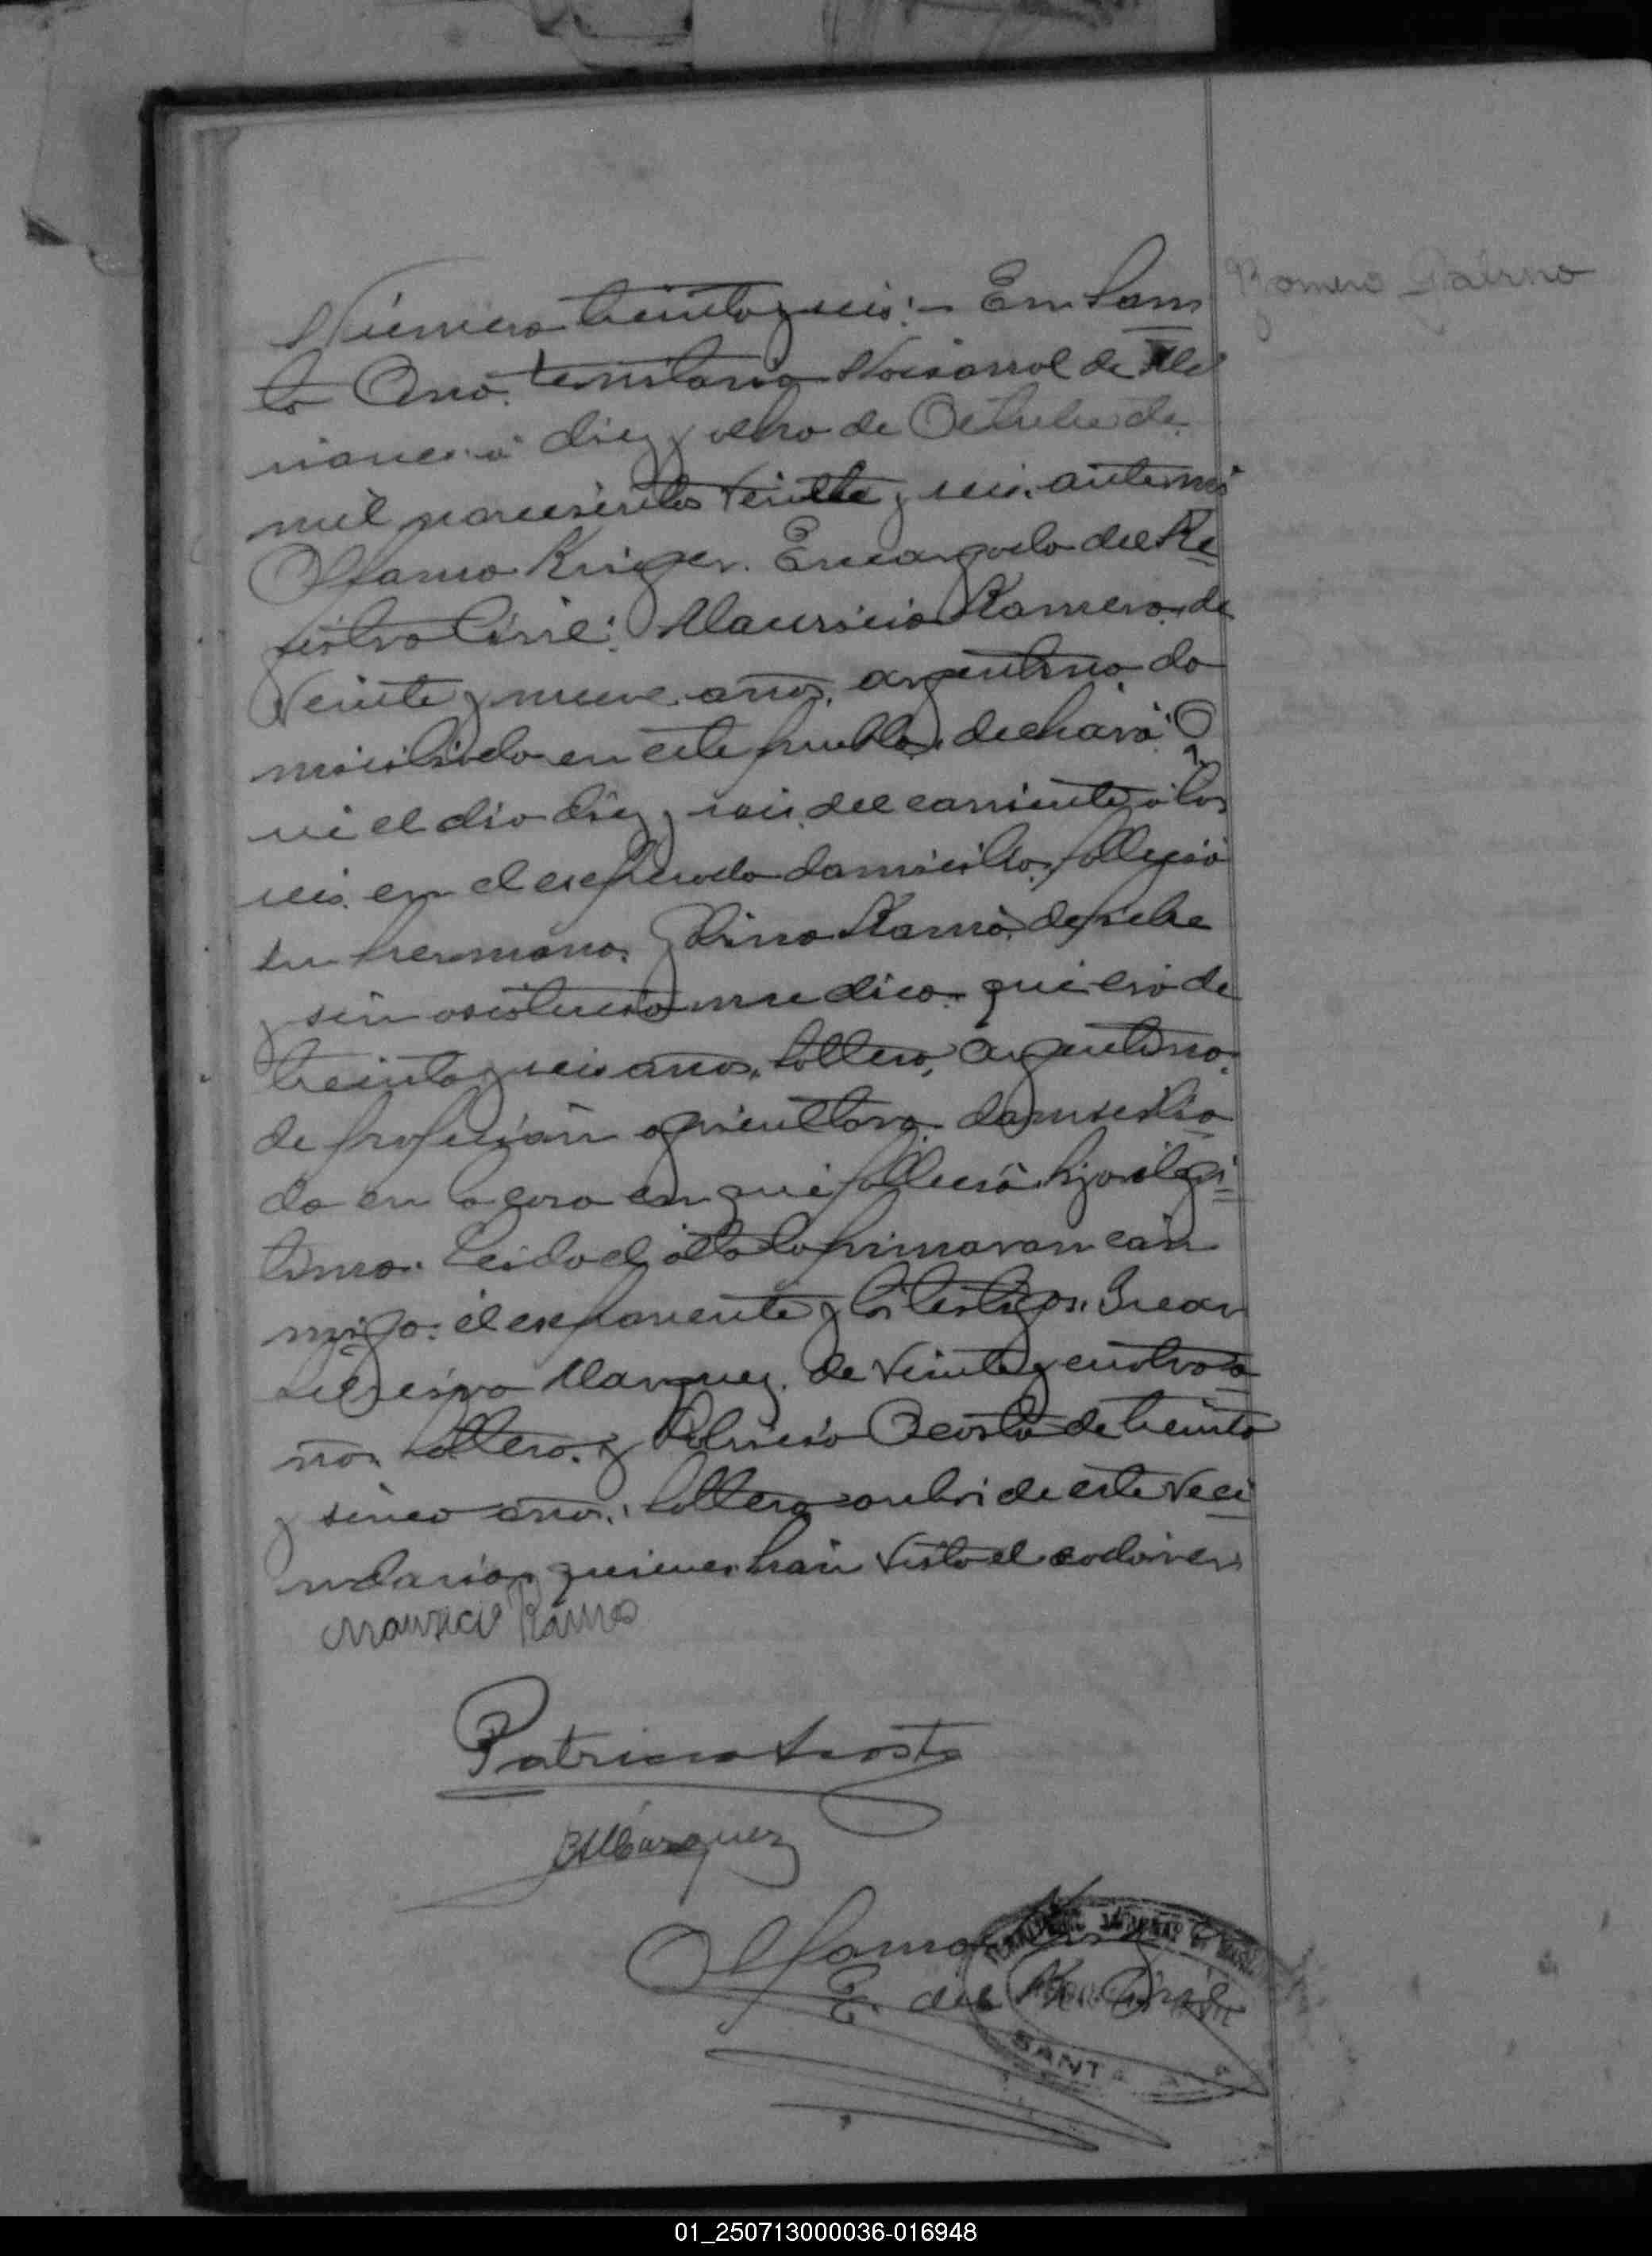 Romero
Número treinta y seis:- En San
ta Ana. territorio Nacional de Mi
siones. á diez y ocho de Octubre de
mil novecientos veinte y seis. ante mi
Kriger. Encargado del Re
gistro Civil: Mauricio Romero. de
veinte y nueve años. argentino do
miciliado en este pueblo. declaró: Q
ue el dia diez y seis del corriente á las
seis. en el expresado domicilio. falleció
su hermano. de fiebre
y sin asistencia medica. que era de
treinta y seis años. soltero, argentino.
de profesión agricultor. domicilia
do en la casa en que falleció. hijo ilegi
timo. Leido el acta la firmaron con
migo: el exponente y los testigos: Juan
Marquez. de veinte y cuatro a
ños soltero. y Patricio Acosta de treinta
y sinco años: soltero ambos de este veci
ndario. quienes han visto el cadaver
Mauricio Ramo
Patricio Acosta
Márquez
E. del Reg. Civil
SANTA ANA
01_250713000036-016948